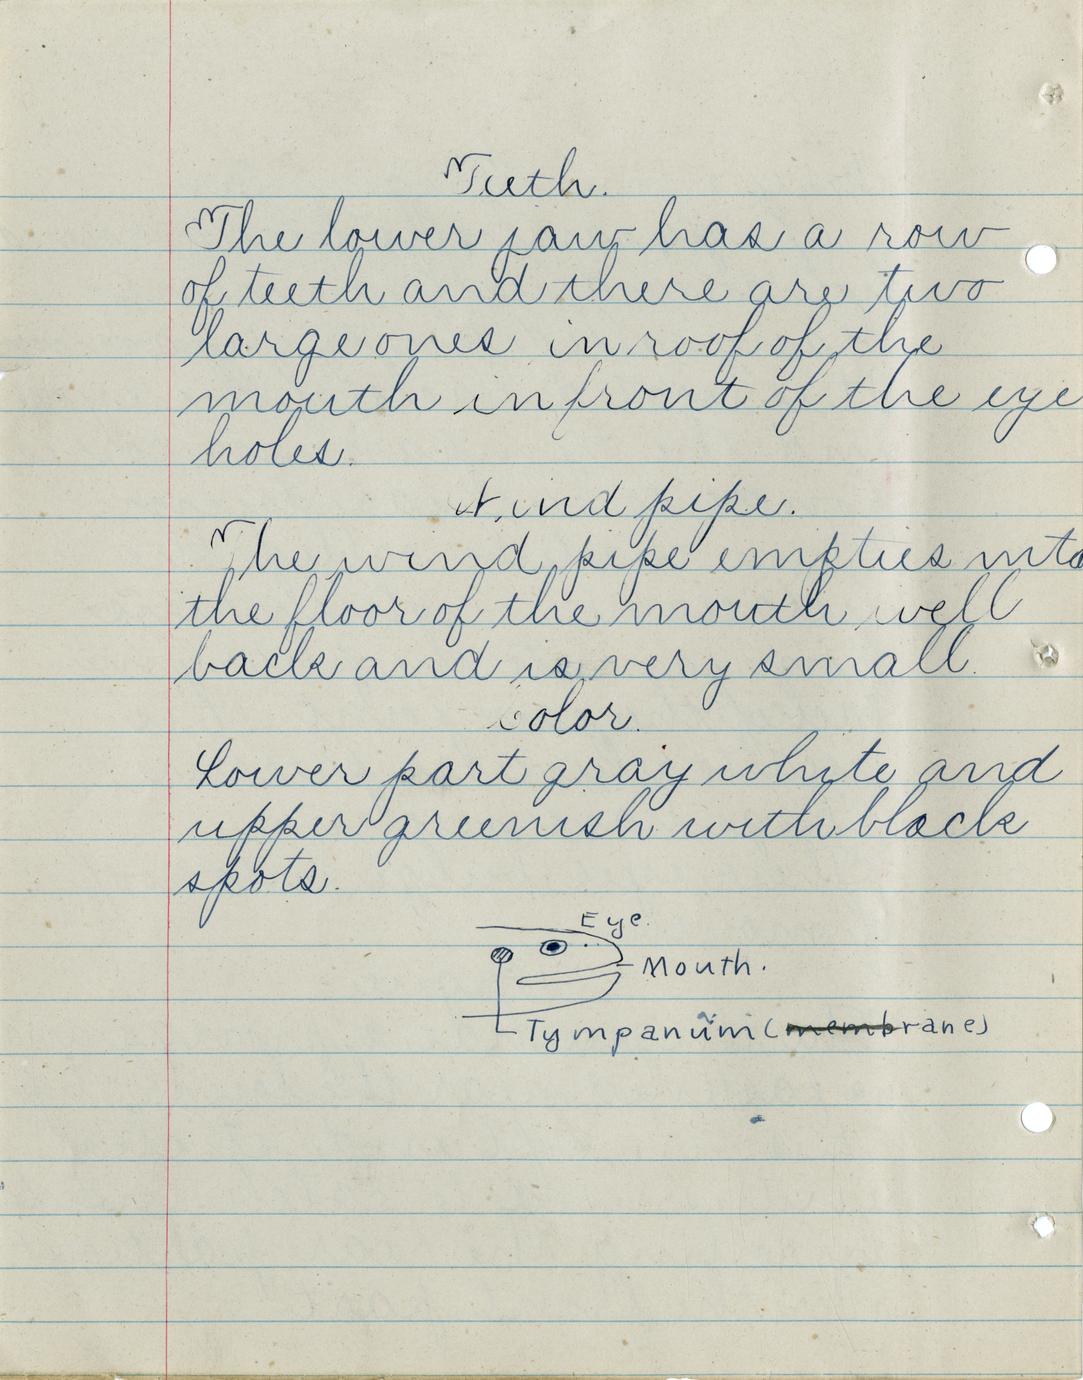 Teeth.
The lower jaw has a row
of teeth and there are two
large ones in roof of the
mouth in front of the eye
holes.
Wind pipe.
The wind pipe empties into
the floor of the mouth well
back and is very small.
Color.
Lower part gray white and
upper greenish with black
spots.
Eye.
Mouth.
Tympanum (membrane)